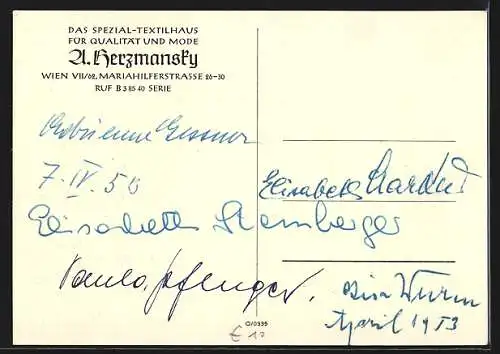 DAS SPEZIAL-TEXTILHAUS
FÜR QUALITÄT UND MODE
A. Herzmansky
WIEN VII/62, MARIAHILFERSTRASSE 26-30
RUF B 3 85 40 SERIE
Adrienne Gessner
7. IV. 50
Elisabeth Markus
Elisabeth Stemberger
Paula Pfluger.
Wurm
April 1953
G/0335
€ 10